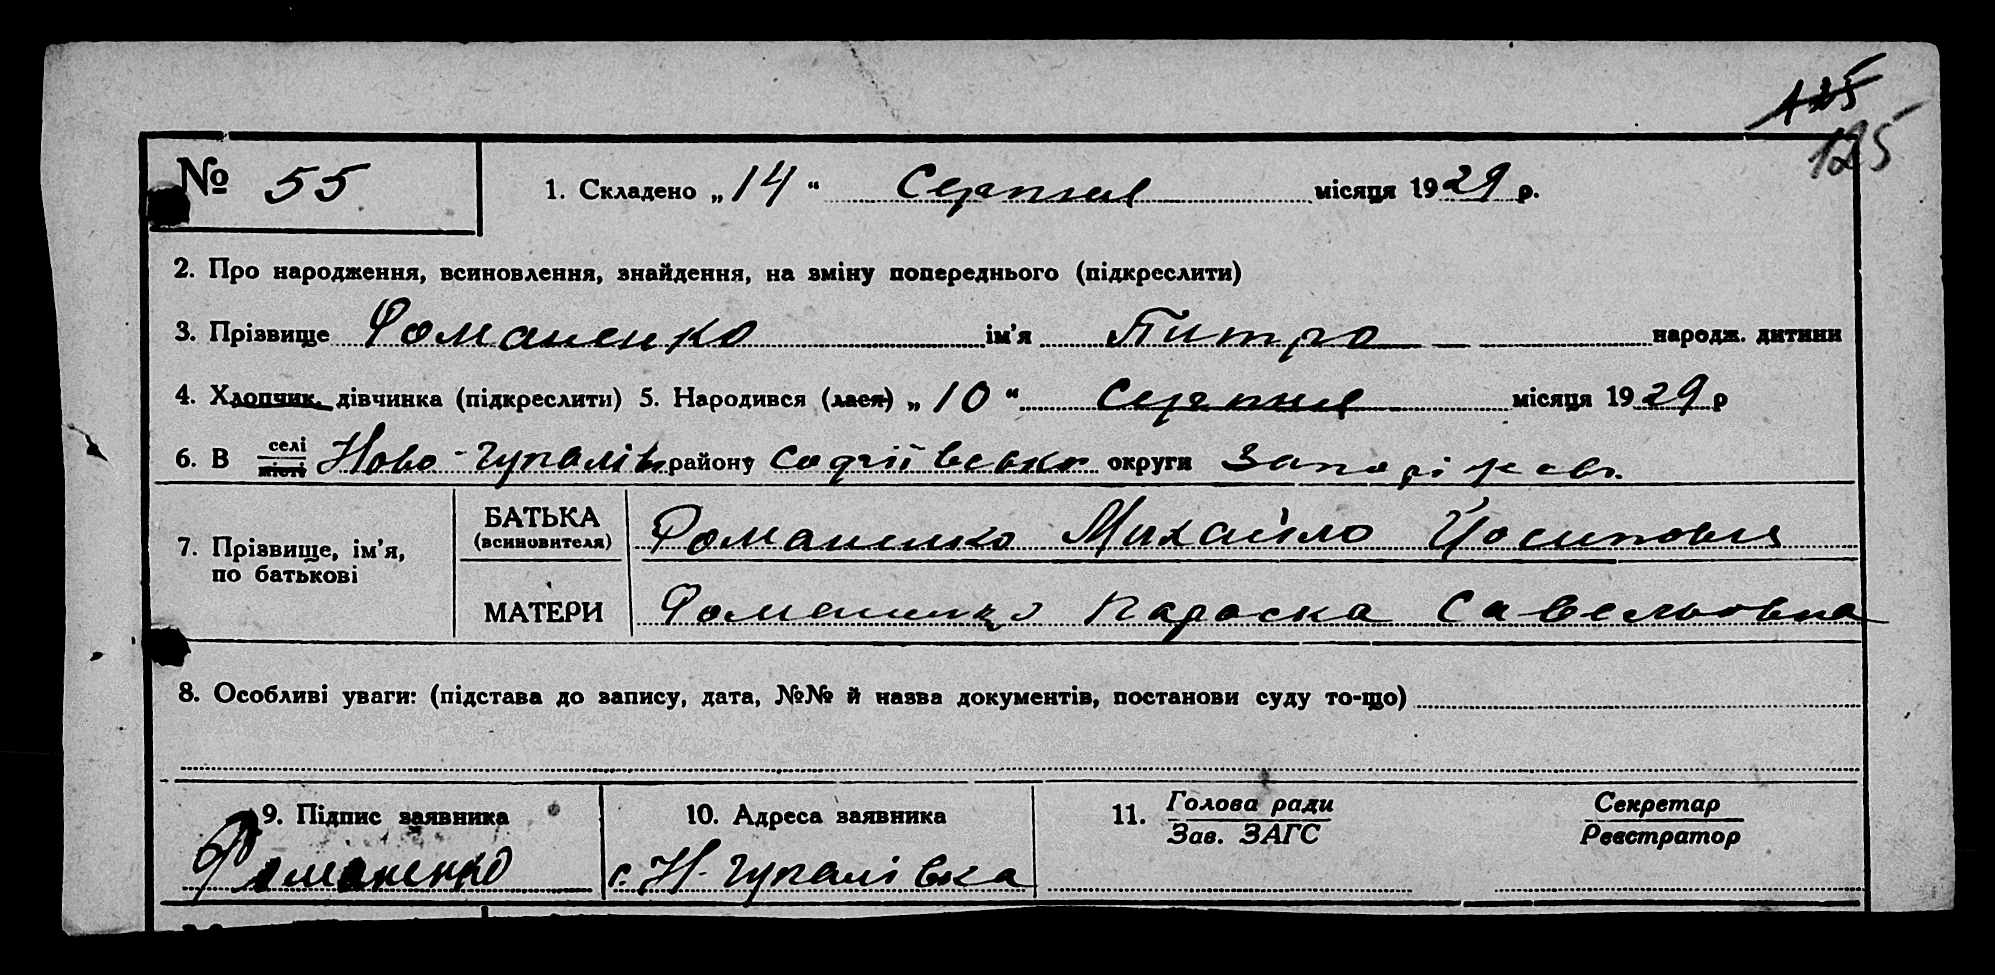 125
125
№ 55 1. Складено „14“ Серпня місяця 1929 р.
2. Про народження, всиновлення, знайдення, на зміну попереднього (підкреслити)
3. Прізвище Романенко ім’я Питро народж. дитини
4. Хлопчик, дівчинка (підкреслити) 5. Народився (лася) „10“ Серпня місяця 1929 р
6. В селі місті Ново-Гупалівк району Софіївсько округи Запоріжсь.
7. Прізвище, ім’я, по батькові
БАТЬКА (всиновителя) Романенко Михайло Йосипович
МАТЕРИ Романенко Параска Савельовна
8. Особливі уваги: (підстава до запису, дата, №№ й назва документів, постанови суду то-що)
9. Підпис заявника
Романенко
10. Адреса заявника
с. Н-Гупалівка
11. Голова ради
Зав. ЗАГС
Секретар
Реєстратор